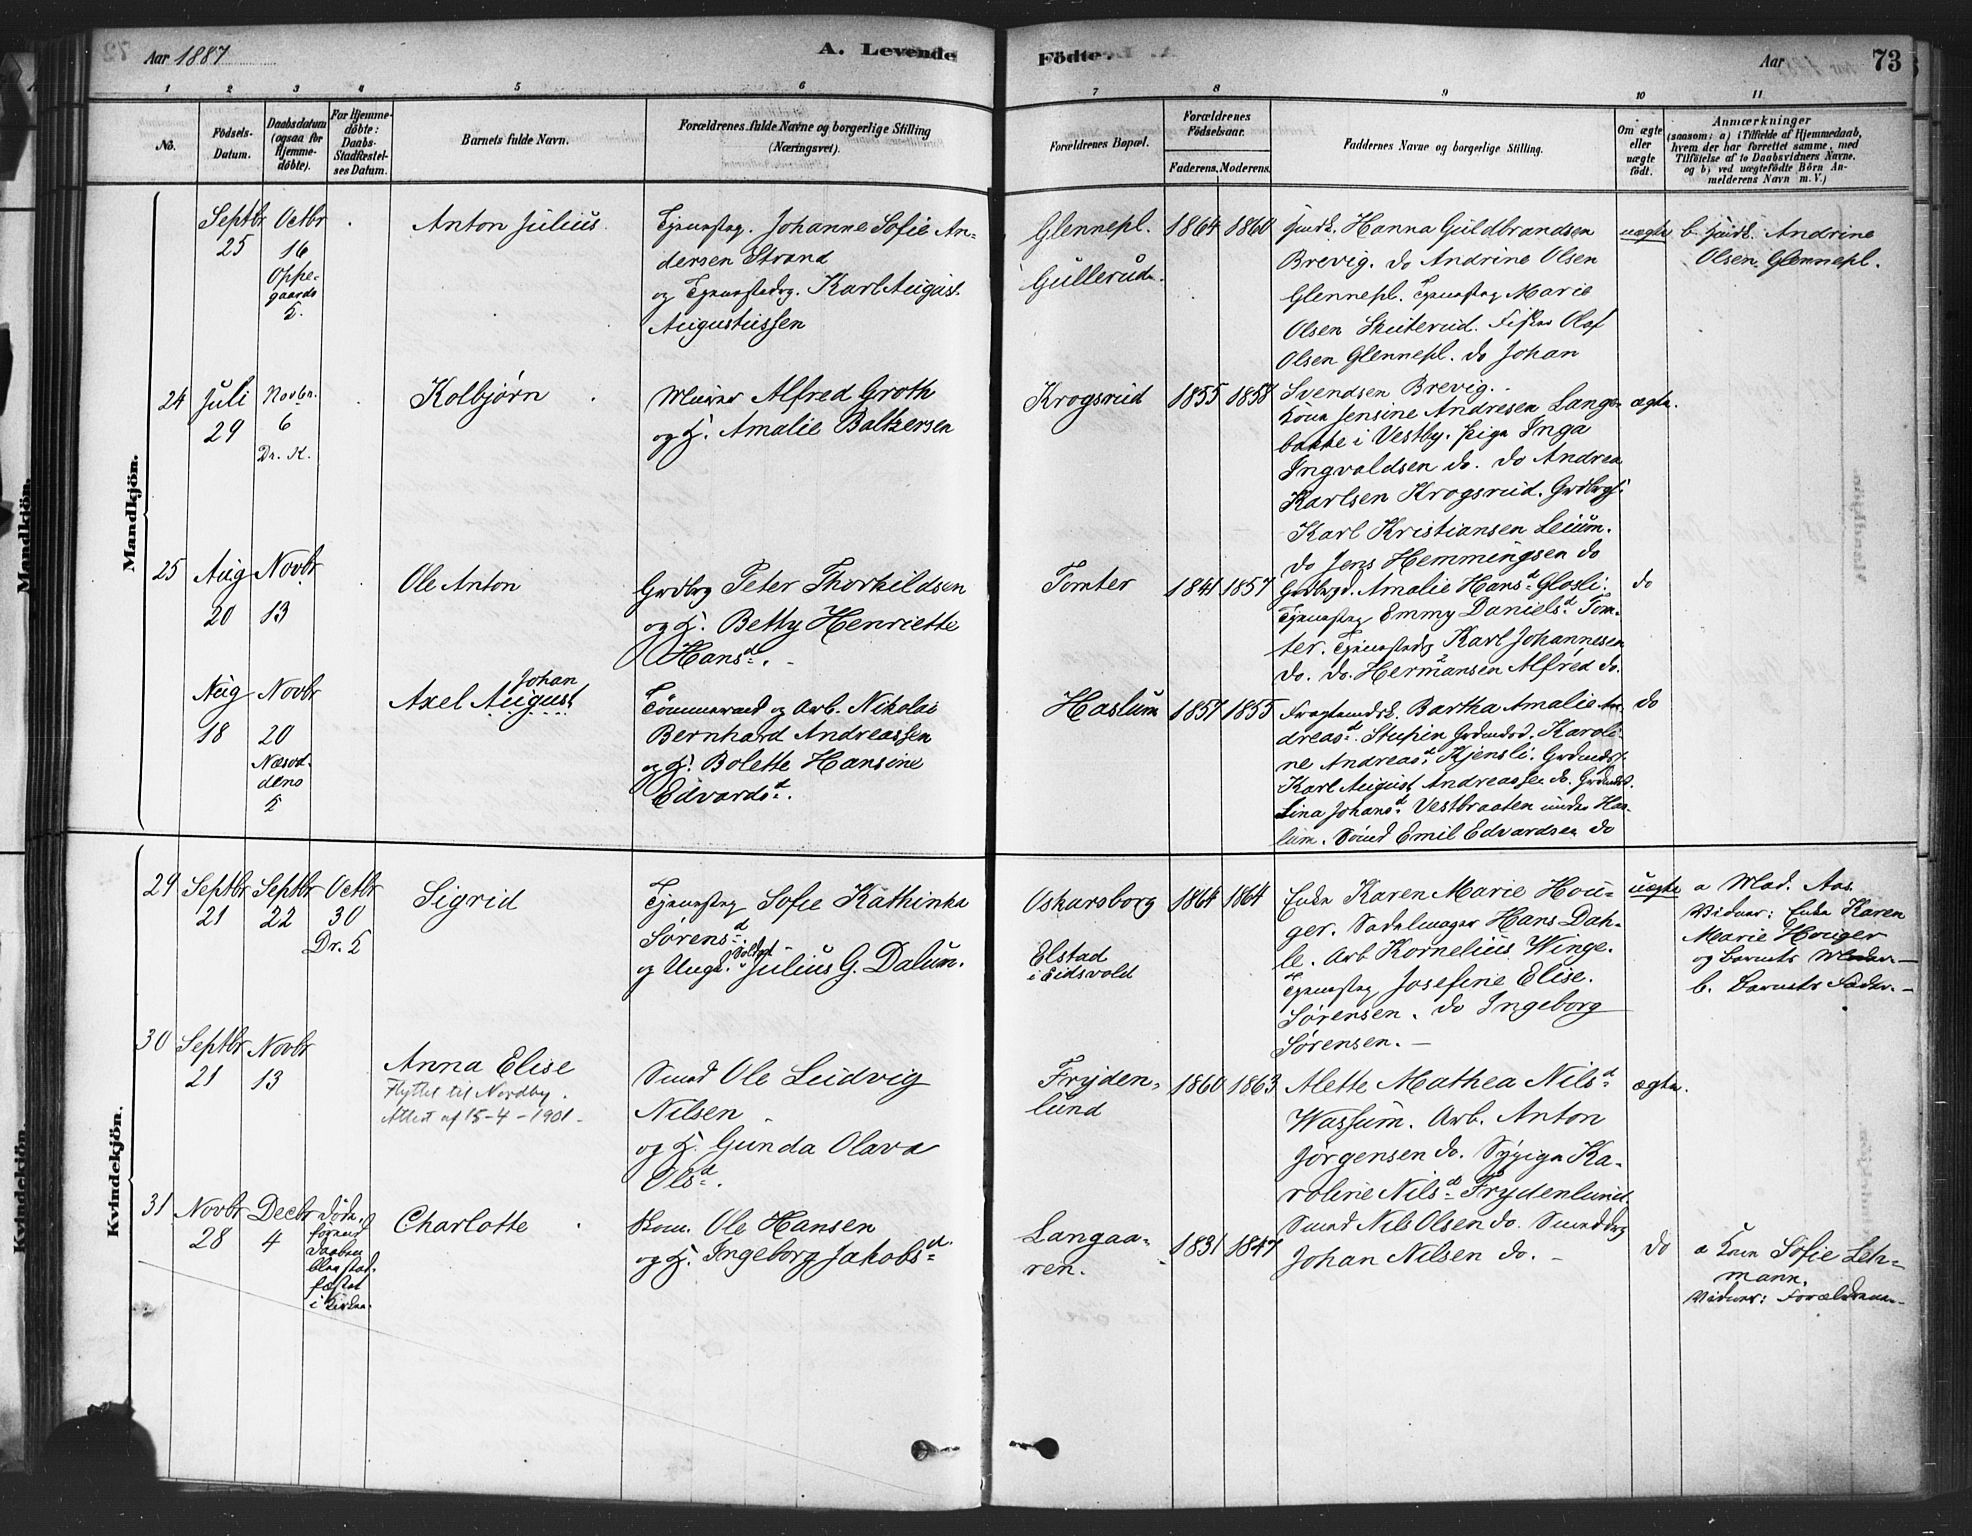 Aar 1887
A. Levende
Födte.
Aar
73
1 2 3 4 5 6 7 8 9 10 11
No.
Födsels-
Datum.
Daabsdatum
(ogsaa för
Hjemme-
döbte).
For Hjemme-
döbte:
Daabs-
Stadfæstel-
ses Datum.
Barnets fulde Navn.
Forældrenes fulde Navne og borgerlige Stilling
(Næringsvei).
Forældrenes Bopæl.
Forældrenes
Födselsaar.
Faderens. Moderens.
Faddernes Navne og borgerlige Stilling.
Om ægte
eller
uægte
födt.
Anmærkninger
(saasom: a) i Tilfælde af Hjemmedaab,
hvem der har forrettet samme, med
Tilföielse af to Daabsvidners Navne.
og b) ved uægtefödte Börn An-
melderens Navn m. V.)
Mandkjön.
Septbr
25
Octbr
16
Oppe-
gaards
K.
Anton Julius
Tjenestpg. Johanne Sofie An-
dersen Strand
og Tjenestedrg. Karl August
Augustussen
Glennepl.
Gullerud.
1864 1860
Hanna Guldbrandsen
Brevig. do Andrine Olsen
Glennepl. Tjenestpg Marie
Olsen Skuterud. Fisker Olaf
Olsen Glennepl. do Johan
Svendsen Brevig.
uægte
b. Andrine
Olsen Glennepl.
24
Juli
29
Novbr.
6
Dr. K.
Kolbjørn
Murer Alfred Groth
og H. Amalie Baltzersen
Krogsrud
1855 1858
Kone Jensine Andresen Lange-
bakke i Vestby. Pige Inga
Ingvaldsen do. do Andrea
Karlsen Krogsrud. Grdbrgs.
Karl Kristiansen Leium.
do Jens Hemmingsen do
ægte.
25
Aug
20
Novbr
13
Ole Anton
Grdbrg Peter Thorkildsen
og H. Betty Henriette
Hansd.
Tomter
1841 1857
Grdbrgd. Amalie Hansd Glosli.
Tjenestpg Emmy Danielsd Tom-
ter. Tjenestedrg Karl Johannesen
do. do. Hermansen Alfred do.
do
Aug
18
Novbr
20
Næsod-
dens
K
Johan
Axel August
Tømmermd og Arb. Nikolai
Bernhard Andreassen
og H. Bolette Hansine
Edvardsd.
Haslum
1857 1855
Bartha Amalie An-
dreasd Stupin Grdmdsd. Karoli-
ne Andreasd Kjensli. Grdmds.
Karl August Andreassen do. Grdmds.
Lina Johansd Vestbraaten under Has-
lum. Smed Emil Edvardsen do
do
Kvindekjön.
29
Septbr
21
Septbr
22
Octbr
30
Dr. K
Sigrid
Tjenestpg Sofie Kathinka
Sørensd
og Ungk. Soldat Julius G. Dalum.
Oskarsborg
Elstad
i Eidsvold
1864 1864
Enke Karen Marie Hou-
ger. Sadelmager Hans Dah-
le. Arb Kornelius Winge.
Tjenestpg Josefine Elise
Sørensen. do Ingeborg
Sørensen. –
uægte
a Mad. Aas.
Vidner: Enke Karen
Marie Houger
og Barnets Moder. –
b. Barnets Fader. –
30
Septbr
21
Novbr
13
Anna Elise
Flyttet til Nordby.
Attest af 15-4-1901.
Smed Ole Ludvig
Nilsen
og H. Gunda Olava
Olsd.
Fryden-
lund
1860 1863
Alette Mathea Nilsd
Wassum. Arb. Anton
Jørgensen do. Sypige Ka-
roline Nilsd Frydenlund.
Smed Nils Olsen do. Smeddrg
Johan Nilsen do. –
ægte.
31
Novbr
28
Decbr
4
Døde
førend
Daaben
blev stad-
fæstet
i Kirken.
Charlotte
Skom. Ole Hansen
og H. Ingeborg Jakobsd
Langaa-
ren.
1831 1847
do
a Kone Sofie Leh-
mann.
Vidner: Forældrene. –